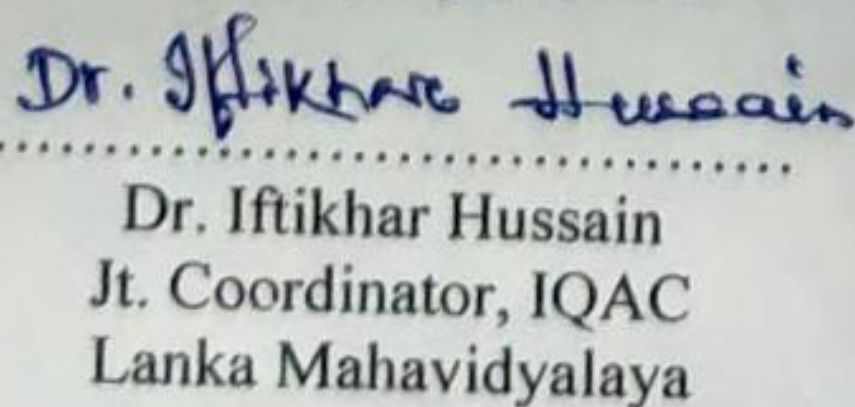 Dr. Iftikhar Hussain
........................................
Dr. Iftikhar Hussain
Jt. Coordinator, IQAC
Lanka Mahavidyalaya